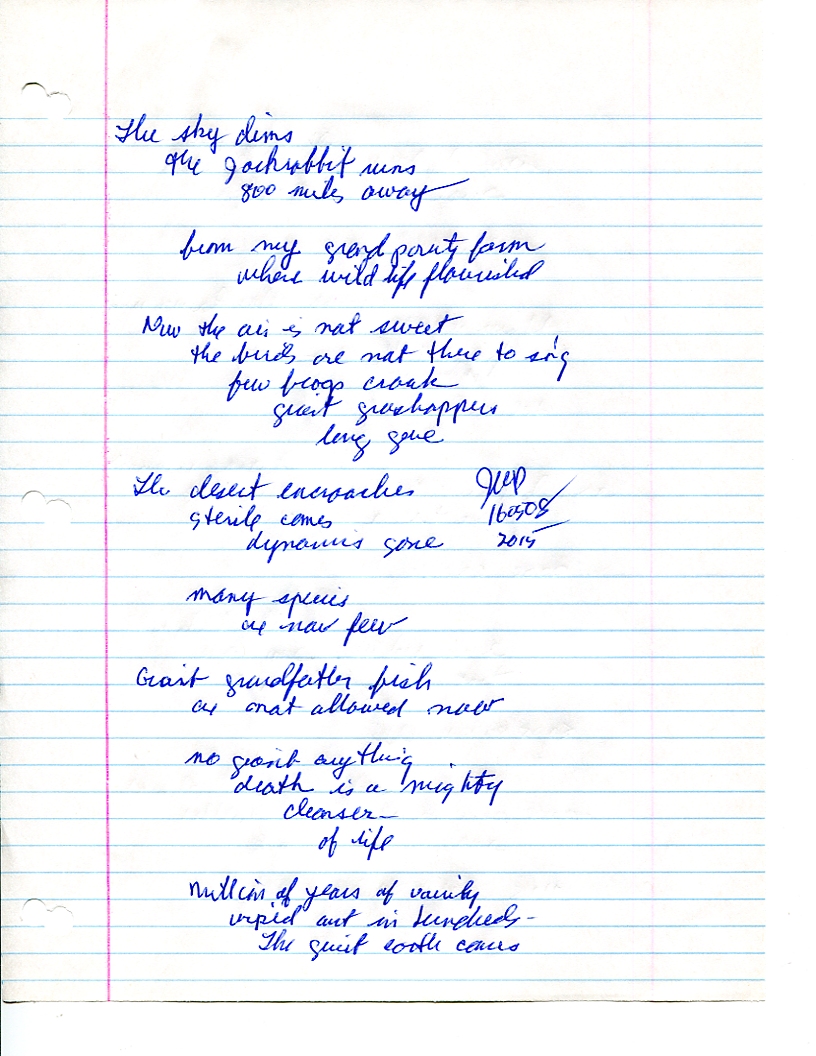 The sky dims
the Jackrabbit runs
800 miles away
from my grand parents farm
where wild life flourished
Now the air is not sweet
the birds are not there to sing
few frogs croak
giant grasshoppers
long gone
The desert encroaches
sterile comes
dynamis gone
JWP
160508
2015
many species
are now few
Giant grandfather fish
are not allowed now
no giant anything
death is a mighty
cleanser
of life
millions of years of variety
wiped out in hundreds -
The quiet earth comes